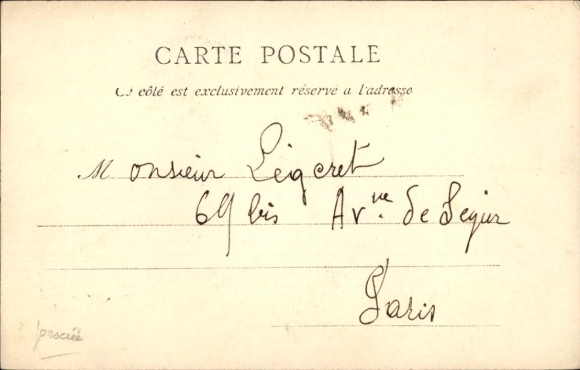 CARTE POSTALE
Ce côté est exclusivement réservé a l'adresse
Monsieur Légeret
69 bis Av.ue de Segur
Paris